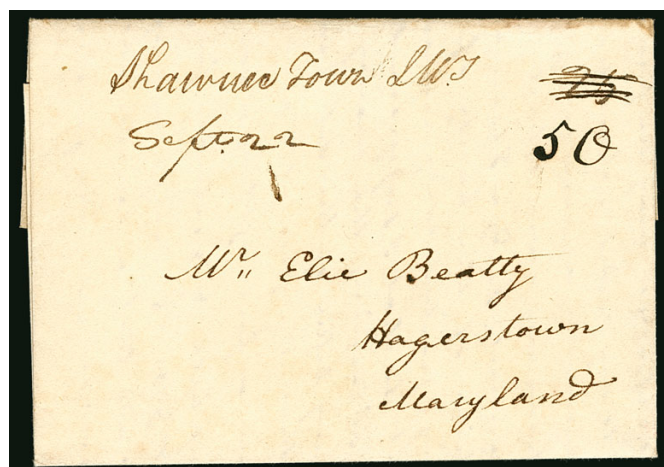 Shawnee Town I W T
25
Sept. 22
50
Mr. Elie Beatty
Hagerstown
Maryland